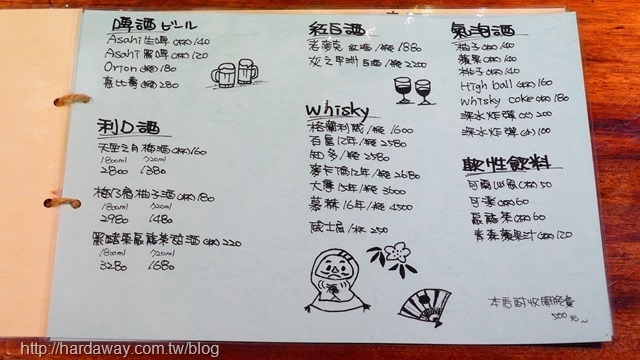 啤酒 ビール
Asahi 生啤 (杯) 140
Asahi 黑啤 (杯) 120
Orion (瓶) 180
惠比壽 (瓶) 280
利口酒
天空之月梅酒 (杯) 160
1800ml 720ml
2800 1380
梅乃宿柚子酒 (杯) 180
1800ml 720ml
2980 1480
黑醋栗烏龍茶甜酒 (杯) 220
1800ml 720ml
3280 1680
紅白酒
紅酒/瓶 1880
之 洲 白酒/瓶 2200
Whisky
格蘭利威/瓶 1600
百富12年/瓶 2580
知多/瓶 2580
麥卡倫12年/瓶 2680
大摩15年/瓶 3600
慕赫16年/瓶 4500
威士忌/杯 250
氣泡酒
柚子 (杯) 140
蘋果 (杯) 140
柚子 (杯) 140
High ball (杯) 160
Whisky coke (杯) 180
深水炸彈 (大) 200
深水炸彈 (小) 100
軟性飲料
可爾必思 (杯) 50
可樂 (杯) 60
烏龍茶 (杯) 60
青森蘋果汁 (杯) 120
本店酌收開瓶費
500元~
http://hardaway.com.tw/blog